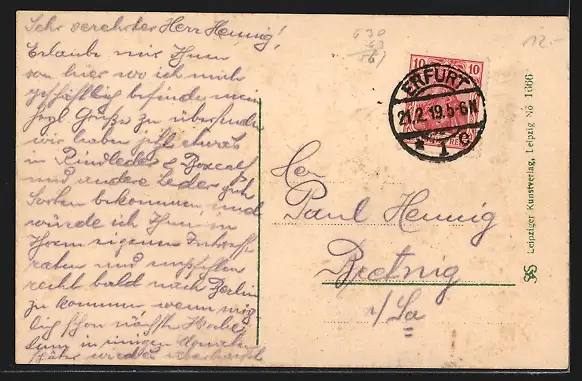 Sehr verehrter Herr Hennig!
Erlaube mir Ihnen
von hier wo ich mich
geschäftlich befinde mein
Grüße zu übersenden
wir haben jetzt etwas
in Rindleder & Boxcalf
und andere Leder
Sorten bekommen und
würde ich Ihnen in
Ihrem eigenen Interesse
raten und empfehlen
recht bald nach Berlin
zu kommen wenn mög
lig schon nächste Woche
denn in einigen
wird es überhaupt
630
12.-
10 10
ERFURT
21.2.19.5-6N
* 1 c
Herr
Paul Hennig
Bretnig
i/Sa
Leipziger Kunstverlag, Leipzig No 1666